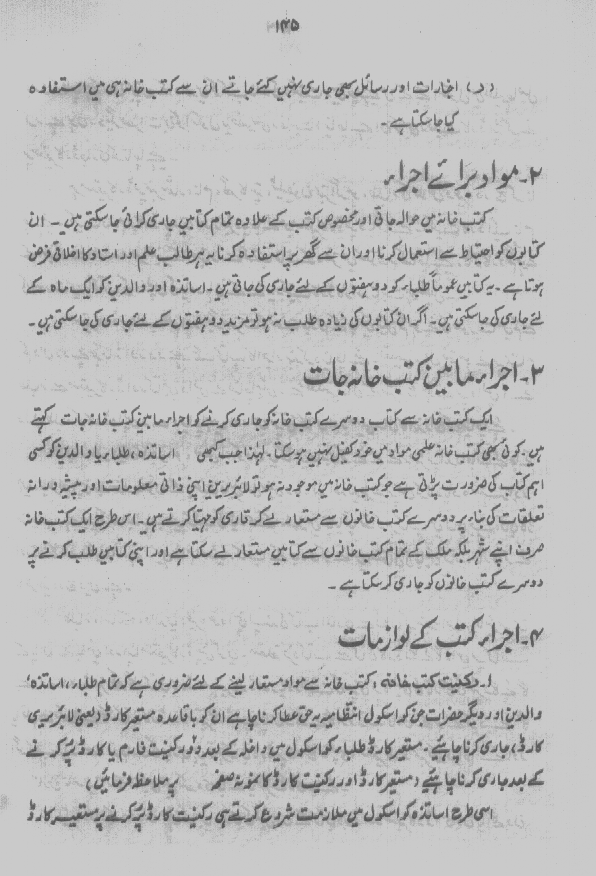 ۱۴۵
(د) اخبارات اور رسائل بھی جاری نہیں کئے جاتے ان سے کتب خانہ ہی میں استفادہ
کیا جا سکتا ہے۔
۲۔ مواد برائے اجراء
کتب خانہ میں حوالہ جاتی اور مخصوص کتب کے علاوہ تمام کتابیں جاری کرائی جا سکتی ہیں۔ ان
کتابوں کو احتیاط سے استعمال کرنا اور ان سے گھر پر استفادہ کرنا یہ ہر طالب علم اور استاد کا اخلاقی فرض
ہوتا ہے۔ یہ کتابیں عموماً طلباء کو دو ہفتوں کے لئے جاری کی جاتی ہیں۔ اساتذہ اور والدین کو ایک ماہ کے
لئے جاری کی جا سکتی ہیں۔ اگر ان کتابوں کی زیادہ طلب نہ ہو تو مزید دو ہفتوں کے لئے جاری کی جا سکتی ہیں۔
۳۔ اجراء مابین کتب خانہ جات
ایک کتب خانہ سے کتاب دوسرے کتب خانہ کو جاری کرنے کو اجراء مابین کتب خانہ جات کہتے
ہیں۔ کوئی بھی کتب خانہ علمی مواد میں خود کفیل نہیں ہو سکتا۔ لہٰذا جب کبھی اساتذہ، طلباء یا والدین کو کسی
اہم کتاب کی ضرورت پڑتی ہے جو کتب خانہ میں موجود نہ ہو تو لائبریرین اپنی ذاتی معلومات اور پیشہ ورانہ
تعلقات کی بناء پر دوسرے کتب خانوں سے مستعار لے کر قاری کو مہیا کرتے ہیں۔ اس طرح ایک کتب خانہ
صرف اپنے شہر بلکہ ملک کے تمام کتب خانوں سے کتابیں مستعار لے سکتا ہے اور اپنی کتابیں طلب کرنے پر
دوسرے کتب خانوں کو جاری کر سکتا ہے۔
۴۔ اجراء کتب کے لوازمات
۱۔ رکنیت کتب خانہ : کتب خانہ سے مواد مستعار لینے کے لئے ضروری ہے کہ تمام طلباء، اساتذہ،
والدین اور دیگر حضرات جن کو اسکول انتظامیہ یہ حق عطا کرنا چاہے ان کو باقاعدہ مستعیر کارڈ (یعنی لائبریری
کارڈ) جاری کرنا چاہئیے۔ مستعیر کارڈ طلباء کو اسکول میں داخلہ کے بعد رکنیت فارم یا کارڈ پُر کرنے
کے بعد جاری کرنا چاہئیے (مستعیر کارڈ اور رکنیت کارڈ کا نمونہ صفحہ پر ملاحظہ فرمائیں)
اسی طرح اساتذہ کو اسکول میں ملازمت شروع کرتے ہی رکنیت کارڈ پُر کرنے پر مستعیر کارڈ